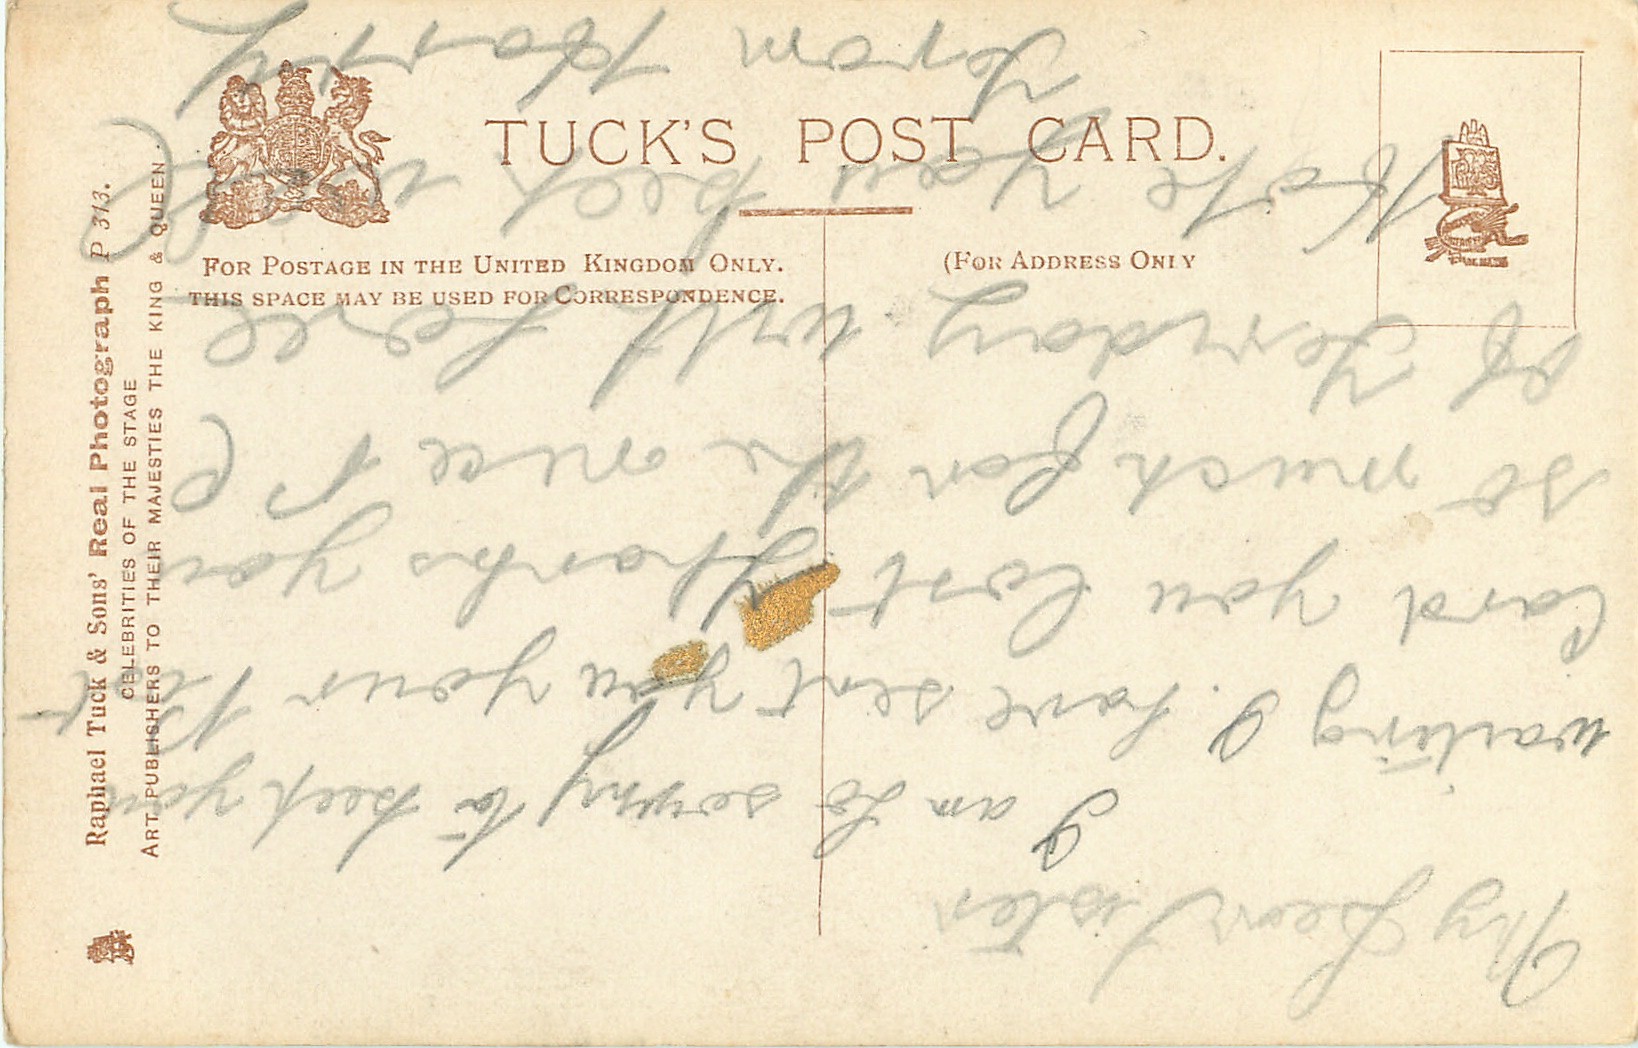 TUCK'S POST CARD.
FOR POSTAGE IN THE UNITED KINGDOM ONLY.
THIS SPACE MAY BE USED FOR CORRESPONDENCE.
(FOR ADDRESS ONLY
Raphael Tuck & Sons' Real Photograph P 313.
CELEBRITIES OF THE STAGE
ART PUBLISHERS TO THEIR MAJESTIES THE KING & QUEEN.
My Dear Sister
I am so sorry to keep you
waiting I have sent you your Past
Card you lost Thanks you
so much for the nice P C
of Ferriday with Love
Hope you keep well
From Harry